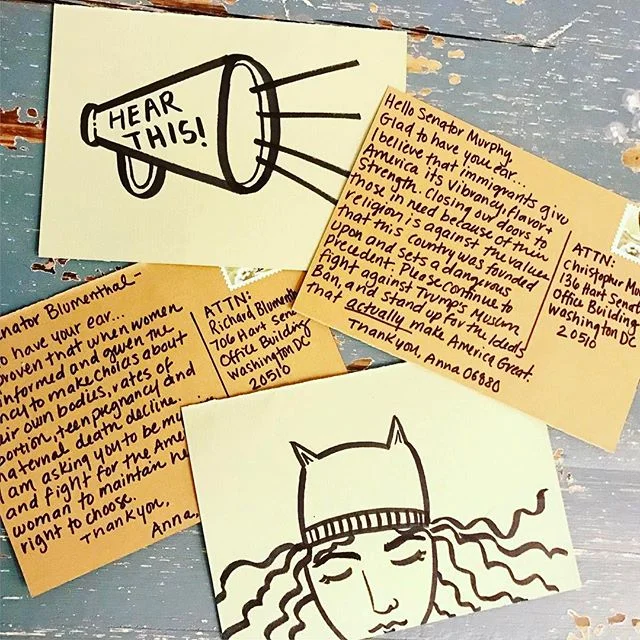 HEAR
THIS!
Hello Senator Murphy,
Glad to have you ear...
I believe that immigrants give
America its Vibrancy, flavor +
Strength. Closing our doors to
those in need because of their
religion is against the values
that this country was founded
upon and sets a dangerous
precedent. Please continue to
fight against Trump's Muslim
Ban, and stand up for the Ideals
that actually make America Great.
Thank you, Anna 06880
ATTN:
Christopher
136 Hart
Office Building
Washington DC
20510
Blumenthal-
have your ear...
that when women
informed and given the
to make choices about
own bodies, rates of
teen pregnancy and
death decline.
I am asking you to be
and fight for the
woman to maintain
right to choose.
Thank you,
Anna
ATTN:
Richard
706 Hart
Office Building
Washington DC
20510